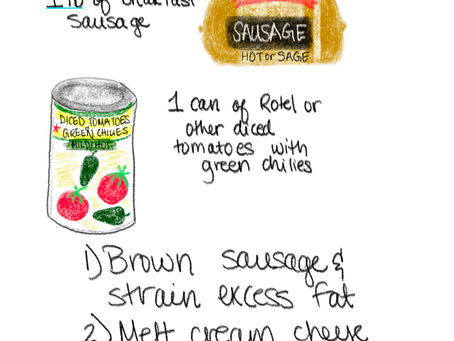 1 lb of breakfast
sausage
SAUSAGE
HOT or SAGE
DICED TOMATOES
GREEN CHILIES
1 can of Rotel or
other diced
tomatoes with
green chilies
1) Brown sausage &
strain excess fat
2) Melt cream cheese